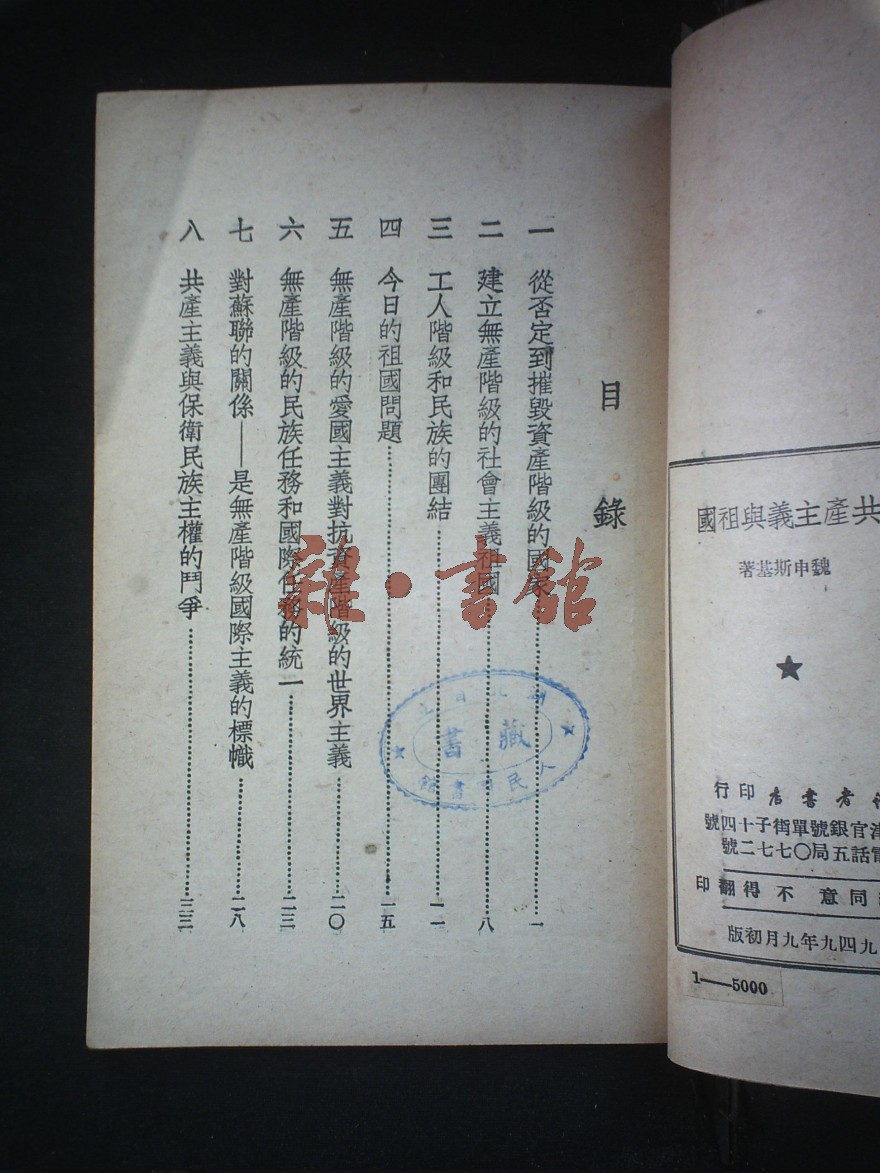 共產主義與祖國
魏申斯基著
★
者書店印行
官銀號單街子十四號
話五局〇七七二號
同意不得翻印
九四九年九月初版
1——5000
目錄
一 從否定到摧毀資產階級的國家 一
二 建立無產階級的社會主義祖國 八
三 工人階級和民族的團結 一一
四 今日的祖國問題 一五
五 無產階級的愛國主義對抗資產階級的世界主義 二〇
六 無產階級的民族任務和國際任務的統一 二三
七 對蘇聯的關係——是無產階級國際主義的標幟 二八
八 共產主義與保衛民族主權的鬥爭 三三
藏書
人民圖書館
書舘